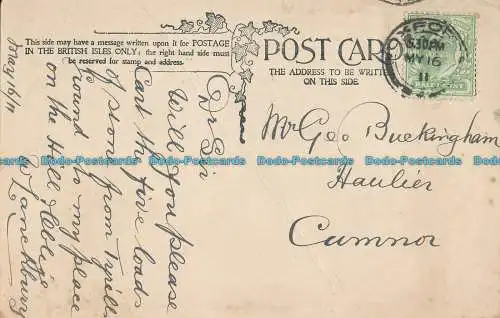 This side may have a message written upon it for POSTAGE
IN THE BRITISH ISLES ONLY; the right hand side must
be reserved for stamp and address.
POST CARD
THE ADDRESS TO BE WRITTEN
ON THIS SIDE.
OXFORD
5.30PM
MY 16
11
May 16/11
Dr Sir
Will you please
Cart the five loads
of stone from Tyrell
round to my place
on the Hill & oblige
W Lanckbury
Mr Geo Buckingham
Haulier
Cumnor
Uda-Postcards Uda-Postcards Uda-Postcards Uda-Postcards Uda-Postcards